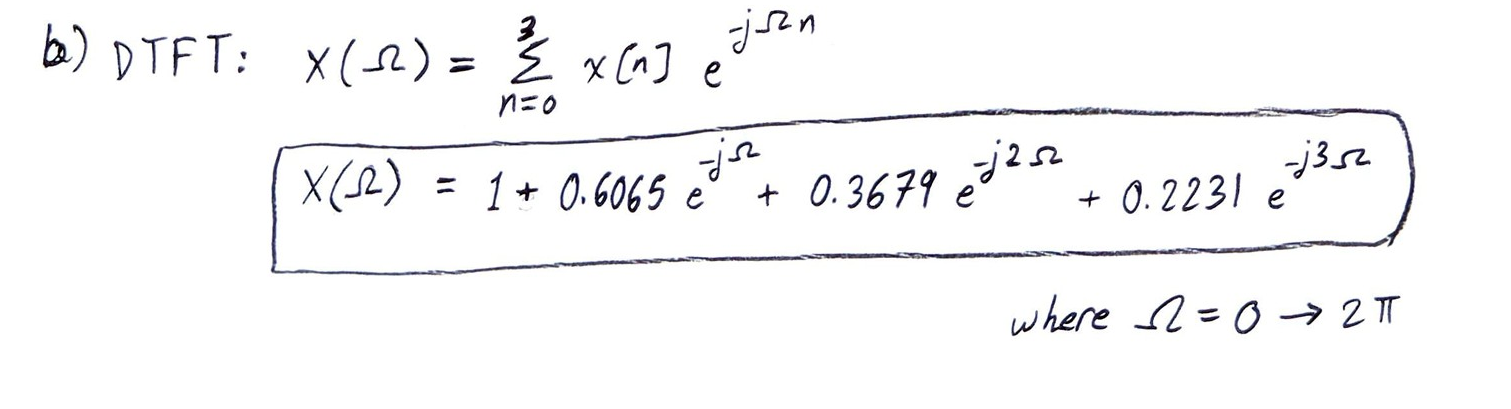 b) DTFT: X(Ω) = Σ_{n=0}^{3} x[n] e^{-jΩn}
X(Ω) = 1 + 0.6065 e^{-jΩ} + 0.3679 e^{-j2Ω} + 0.2231 e^{-j3Ω}
where Ω = 0 → 2π